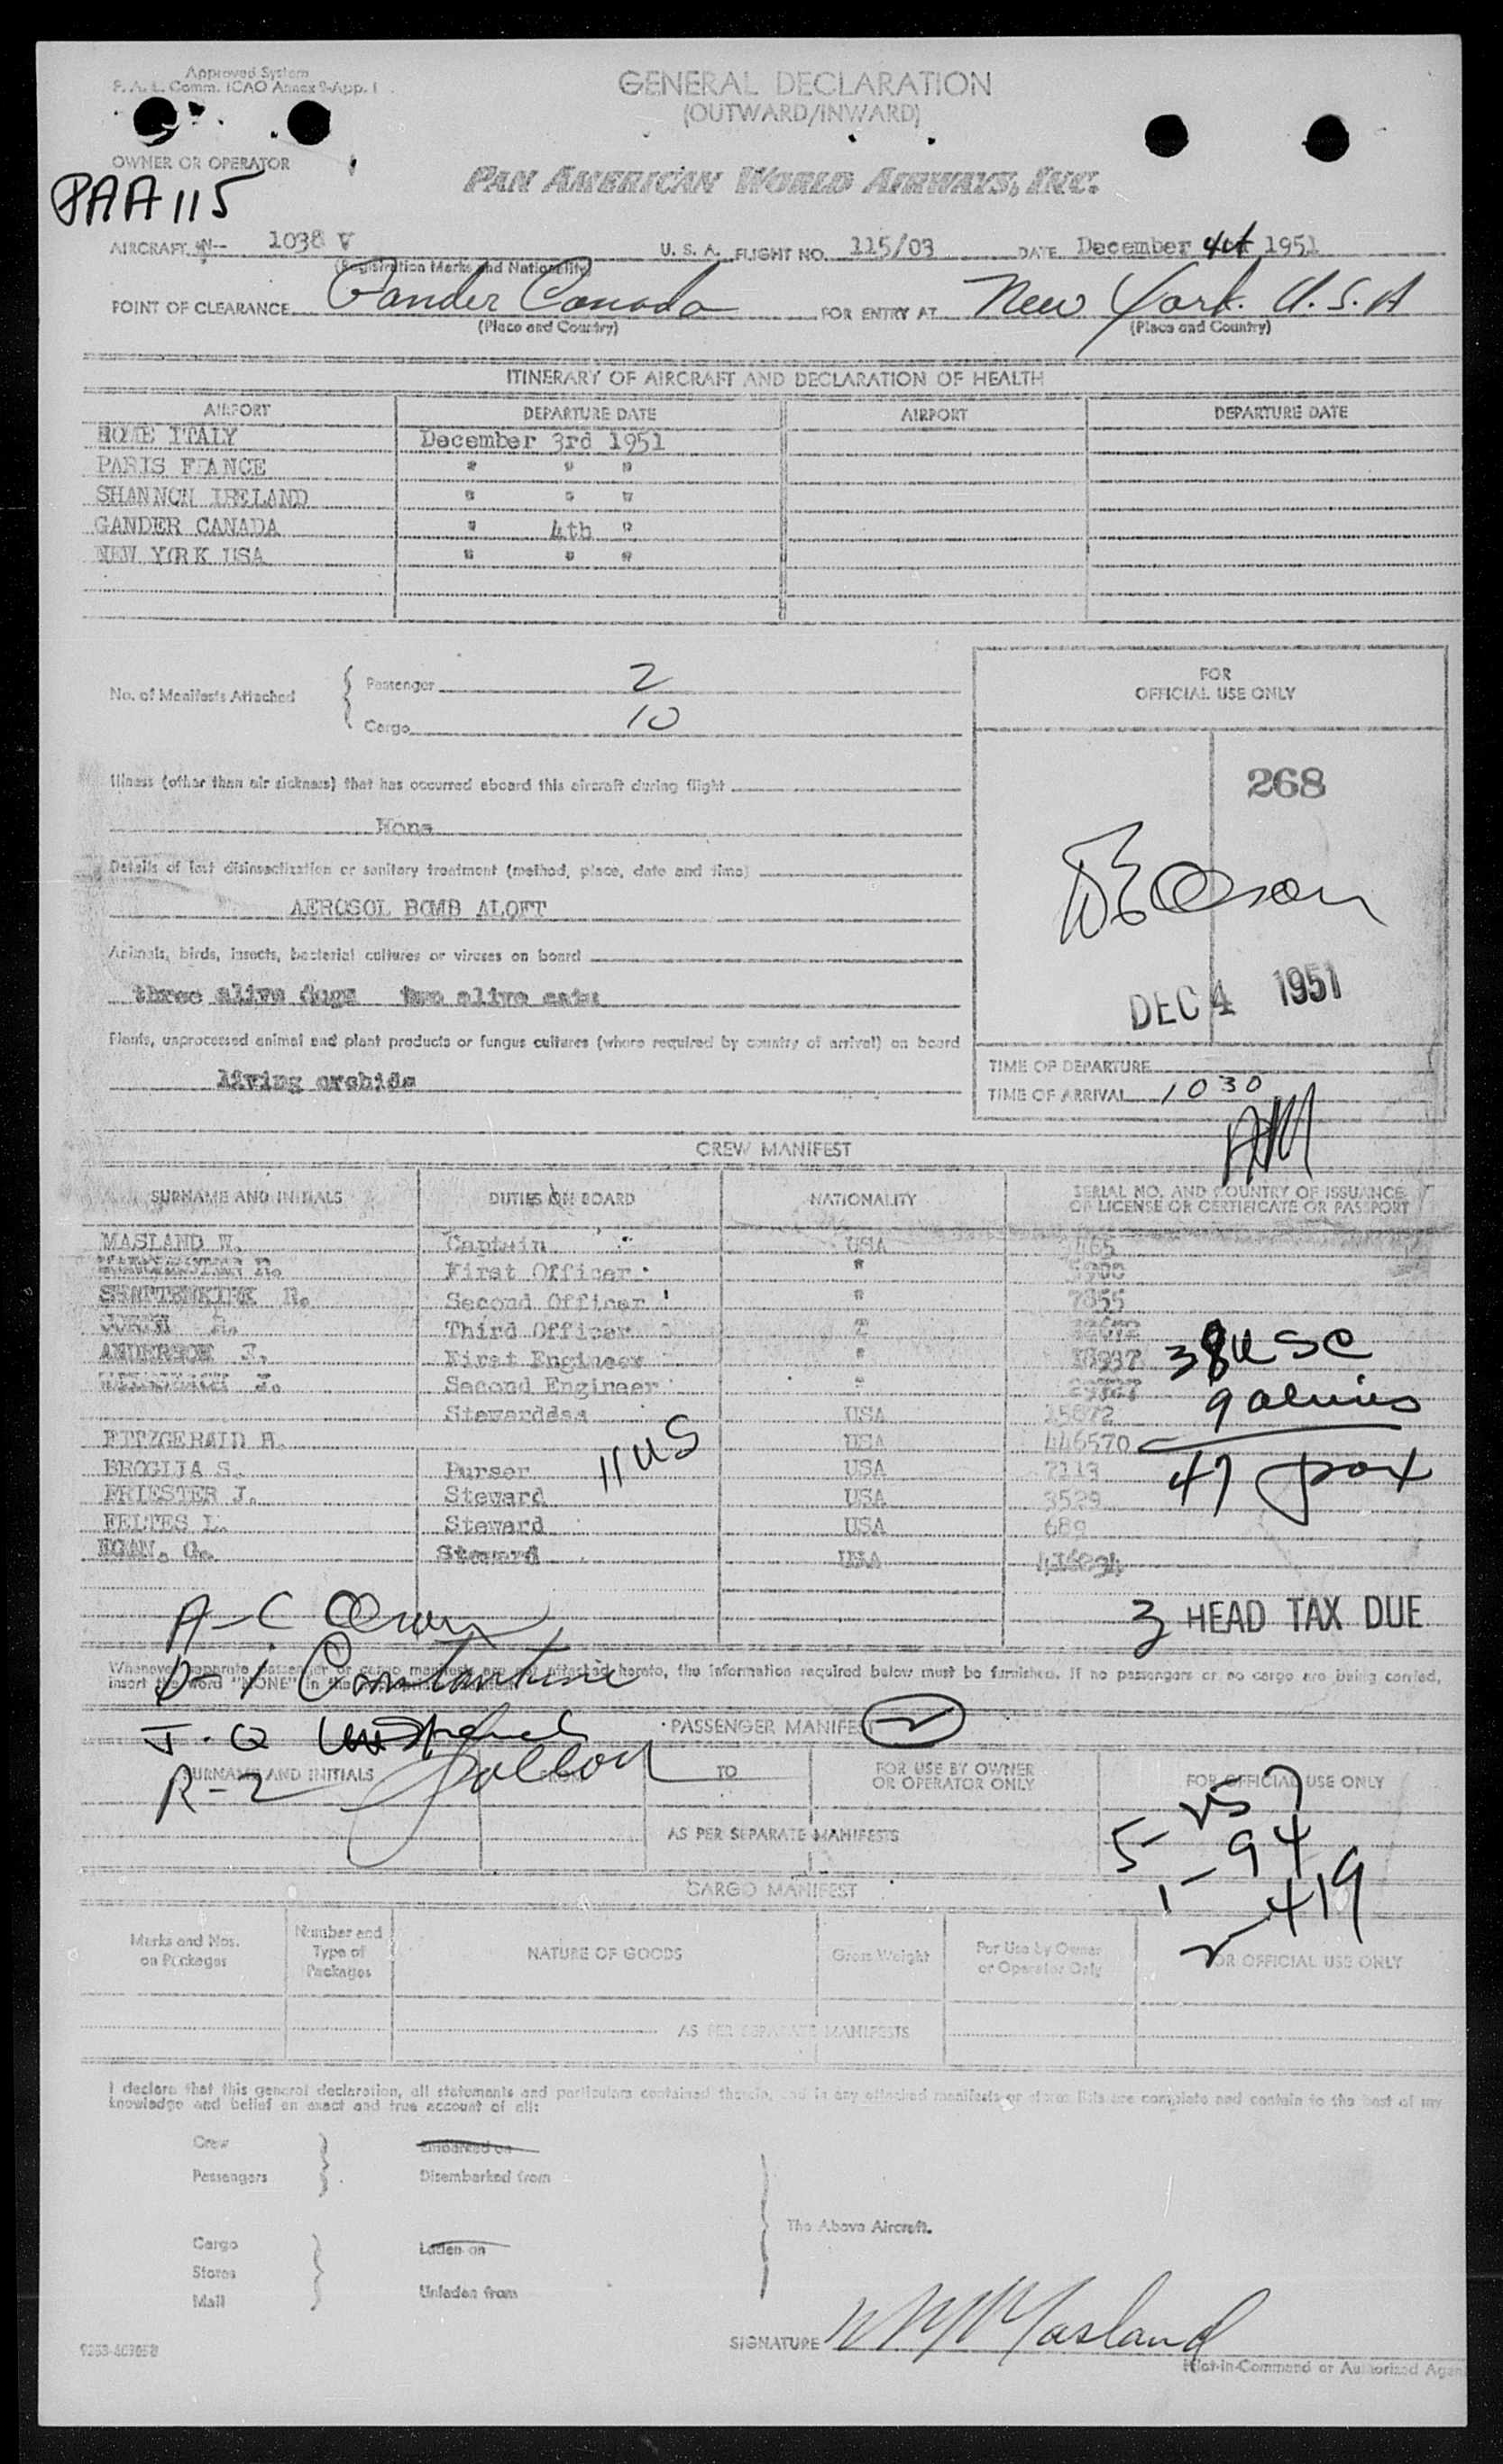 Approved System
F. A. L. Comm. ICAO Annex 9-App. 1
GENERAL DECLARATION
(OUTWARD/INWARD)
OWNER OR OPERATOR
PAN AMERICAN WORLD AIRWAYS, INC.
PAA 115
AIRCRAFT N- 1038 V U. S. A. FLIGHT NO. 115/03 DATE December 4th 1951
(Registration Marks and Nationality)
POINT OF CLEARANCE Gander Canada FOR ENTRY AT New York. U.S.A
(Place and Country) (Place and Country)
ITINERARY OF AIRCRAFT AND DECLARATION OF HEALTH
AIRPORT DEPARTURE DATE AIRPORT DEPARTURE DATE
ROME ITALY December 3rd 1951
PARIS FRANCE " " "
SHANNON IRELAND " " "
GANDER CANADA " 4th "
NEW YORK USA " " "
No. of Manifests Attached { Passenger 2
Cargo 10
FOR
OFFICIAL USE ONLY
268
Illness (other than air sickness) that has occurred aboard this aircraft during flight
None
Details of last disinsectization or sanitary treatment (method, place, date and time)
AEROSOL BOMB ALOFT
Animals, birds, insects, bacterial cultures or viruses on board
three alive dogs two alive cats
DEC 4 1951
Plants, unprocessed animal and plant products or fungus cultures (where required by country of arrival) on board
living orchids
TIME OF DEPARTURE
TIME OF ARRIVAL 1030
AM
CREW MANIFEST
SURNAME AND INITIALS DUTIES ON BOARD NATIONALITY SERIAL NO. AND COUNTRY OF ISSUANCE
OF LICENSE OR CERTIFICATE OR PASSPORT
MASLAND W. Captain USA
First Officer "
R. Second Officer " 7855
Third Officer
ANDERSON J. First Engineer " 18937
J. Second Engineer
Stewardess USA 15872
FITZGERALD A. USA 446570
BROGLIA S. Purser USA 7113
PRIESTER J. Steward USA 3529
FELTES L. Steward USA 689
EGAN. G. Steward USA
11 US
38 USC
9 aliens
47 pax
3 HEAD TAX DUE
A-C
D-1 Constantine
J-Q
R-Z
Whenever separate passenger or cargo manifests are not attached hereto, the information required below must be furnished. If no passengers or no cargo are being carried,
insert the word "NONE" in the
PASSENGER MANIFEST 2
SURNAME AND INITIALS FROM TO FOR USE BY OWNER
OR OPERATOR ONLY FOR OFFICIAL USE ONLY
AS PER SEPARATE MANIFESTS
5- 94
1- 419
CARGO MANIFEST
Marks and Nos.
on Packages Number and
Type of
Packages NATURE OF GOODS Gross Weight For Use by Owner
or Operator Only FOR OFFICIAL USE ONLY
AS PER SEPARATE MANIFESTS
I declare that this general declaration, all statements and particulars contained therein, and in any attached manifests or stores lists are complete and contain to the best of my
knowledge and belief an exact and true account of all:
Crew Embarked on
Passengers Disembarked from
The Above Aircraft.
Cargo Laden on
Stores
Mail Unladen from
SIGNATURE W M Masland
Pilot-in-Command or Authorized Agent